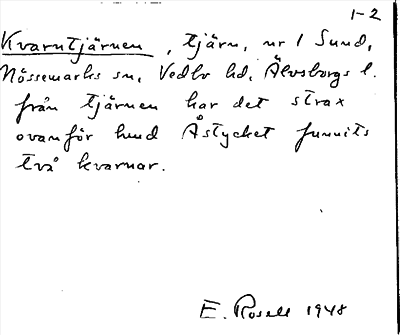 1-2
Kvarntjärnen, tjärn, nr 1 Sund,
Nössemarks sn, Vedbo hd, Älvsborgs l.
från tjärnen har det strax
ovanför hmd Åstycket funnits
två kvarnar.
E. Rosell 1948